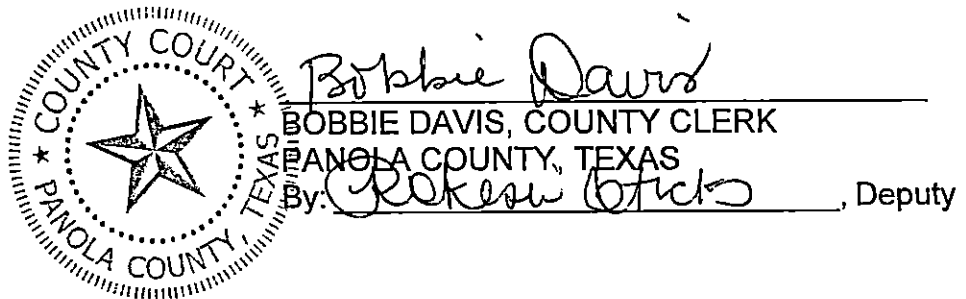 COUNTY COURT
PANOLA COUNTY, TEXAS
Bobbie Davis
BOBBIE DAVIS, COUNTY CLERK
PANOLA COUNTY, TEXAS
By: , Deputy